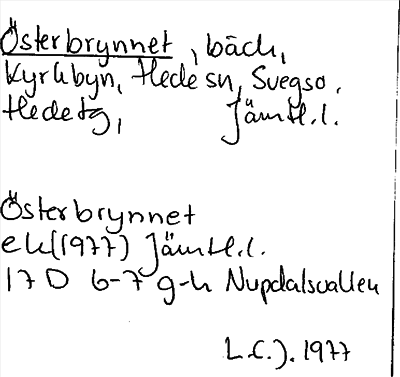 Österbrynnet, bäck,
Kyrkbyn, Hede sn, Svegs o.
Hede tg, Jämtl. l.
Österbrynnet
ek (1977) Jämtl. l.
17 D 6-7 g-h Nupdalsvallen
L.C.J. 1977